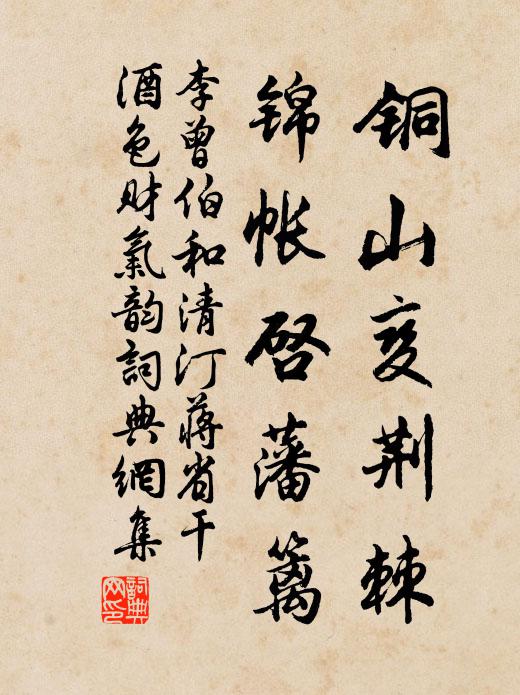 铜山变荆棘
锦帐启藩篱
李曾伯和清汀蒋省干
酒色财氣韵詞典網集
詞典网印